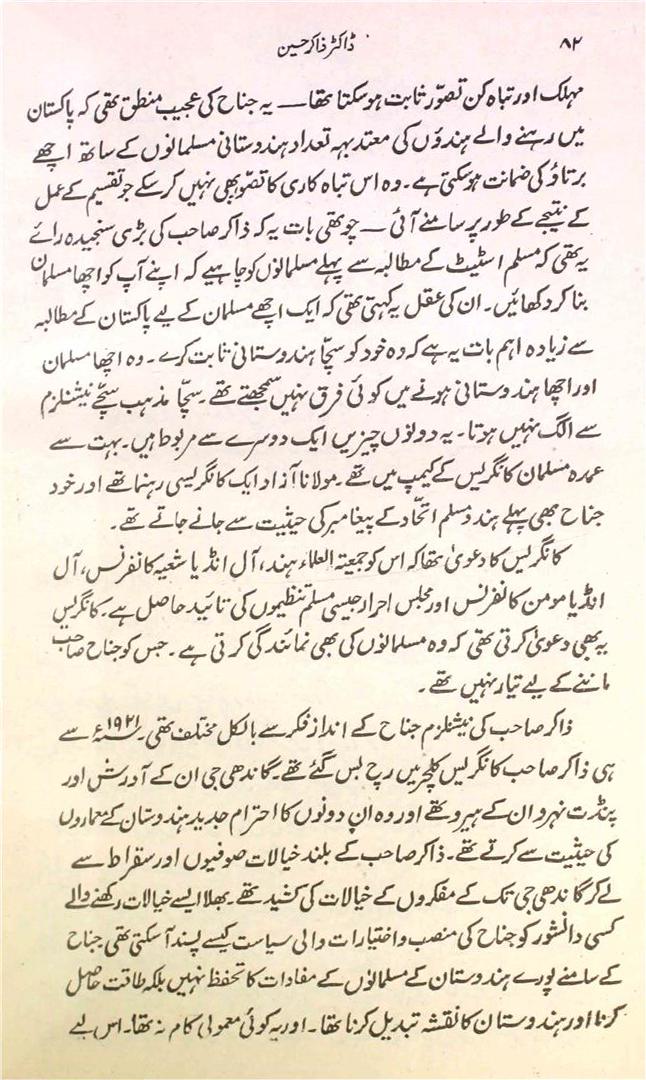 ۸۲
ڈاکٹر ذاکر حسین
مہلک اور تباہ کن تصوّر ثابت ہو سکتا تھا — یہ جناح کی عجیب منطق تھی کہ پاکستان
میں رہنے والے ہندوؤں کی معتد بہہ تعداد ہندوستانی مسلمانوں کے ساتھ اچھے
برتاؤ کی ضمانت ہو سکتی ہے۔ وہ اس تباہ کاری کا تصوّر بھی نہیں کر سکے جو تقسیم کے عمل
کے نتیجے کے طور پر سامنے آئی — چوتھی بات یہ کہ ذاکر صاحب کی بڑی سنجیدہ رائے
یہ تھی کہ مسلم اسٹیٹ کے مطالبہ سے پہلے مسلمانوں کو چاہیے کہ اپنے آپ کو اچھا مسلمان
بنا کر دکھائیں۔ ان کی عقل یہ کہتی تھی کہ ایک اچھے مسلمان کے لیے پاکستان کے مطالبہ
سے زیادہ اہم بات یہ ہے کہ وہ خود کو سچا ہندوستانی ثابت کرے۔ وہ اچھا مسلمان
اور اچھا ہندوستانی ہونے میں کوئی فرق نہیں سمجھتے تھے۔ سچّا مذہب سچّے نیشنلزم
سے الگ نہیں ہوتا۔ یہ دونوں چیزیں ایک دوسرے سے مربوط ہیں۔ بہت سے
عمدہ مسلمان کانگریس کے کیمپ میں تھے۔ مولانا آزاد ایک کانگریسی رہنما تھے اور خود
جناح بھی پہلے ہندو مسلم اتحّاد کے پیغامبر کی حیثیت سے جانے جاتے تھے۔
کانگریس کا دعویٰ تھا کہ اس کو جمیعتہ العلماء ہند، آل انڈیا شعیہ کانفرنس، آل
انڈیا مومن کانفرنس اور مجلس احرار جیسی مسلم تنظیموں کی تائید حاصل ہے۔ کانگریس
یہ بھی دعویٰ کرتی تھی کہ وہ مسلمانوں کی بھی نمائندگی کرتی ہے۔ جس کو جناح صاحب
ماننے کے لیے تیار نہیں تھے۔
ذاکر صاحب کی نیشنلزم جناح کے انداز فکر سے بالکل مختلف تھی۔ ۱۹۲۱ء سے
ہی ذاکر صاحب کانگریس کلچر میں رچ بس گئے تھے۔ گاندھی جی ان کے آدرش اور
پنڈت نہرو ان کے ہیرو تھے اور وہ ان دونوں کا احترام جدید ہندوستان کے معماروں
کی حیثیت سے کرتے تھے۔ ذاکر صاحب کے بلند خیالات صوفیوں اور سقراط سے
لے کر گاندھی جی تک کے مفکروں کے خیالات کی کشید تھے۔ بھلا ایسے خیالات رکھنے والے
کسی دانشور کو جناح کی منصب و اختیارات والی سیاست کیسے پسند آسکتی تھی جناح
کے سامنے پورے ہندوستان کے مسلمانوں کے مفادات کا تحفظ نہیں بلکہ طاقت حاصل
کرنا اور ہندوستان کا نقشہ تبدیل کرنا تھا۔ اور یہ کوئی معمولی کام نہ تھا۔ اس لیے